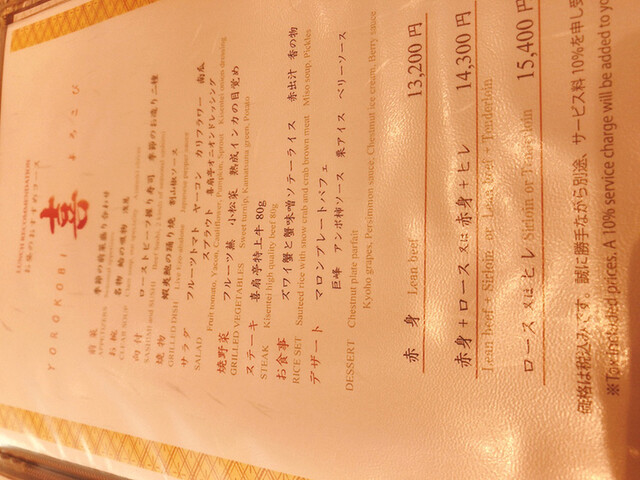 LUNCH RECOMMENDATION
お昼のおすすめコース
喜
よろこび
YOROKOBI
前菜 季節の前菜盛り合わせ
APPETIZERS
お椀 名物 蛤の吸物
CLEAR SOUP
向付 ローストビーフ握り寿司 季節のお造り二種
SASHIMI and SUSHI
焼物 蝦夷鮑の踊り焼 割山椒ソース
GRILLED DISH
サラダ フルーツトマト ヤーコン カリフラワー 南瓜
スプラウト 喜扇亭オニオンドレッシング
SALAD Fruit tomato, Yacon, Cauliflower, Pumpkin, Sprout Kisentei onion dressing
焼野菜 フルーツ蕪 小松菜 熟成インカの目覚め
GRILLED VEGETABLES Sweet turnip, Komatsuna green, Potato
ステーキ 喜扇亭特上牛 80g
STEAK Kisentei high quality beef 80g
お食事 ズワイ蟹と蟹味噌ソテーライス 赤出汁 香の物
RICE SET Sauteed rice with snow crab and crab brown meat Miso soup, Pickles
デザート マロンプレートパフェ
巨峰 アンポ柿ソース 栗アイス ベリーソース
DESSERT Chestnut plate parfait
Kyoho grapes, Persimmon sauce, Chestnut ice cream, Berry sauce
赤身 Lean beef 13,200円
赤身+ロース 又は 赤身+ヒレ 14,300円
Lean beef + Sirloin or Lean beef + Tenderloin
ロース 又は ヒレ Sirloin or Tenderloin 15,400円
価格は税込みです。誠に勝手ながら別途、サービス料10%を申し受
※Tax included prices. A 10% service charge will be added to yo